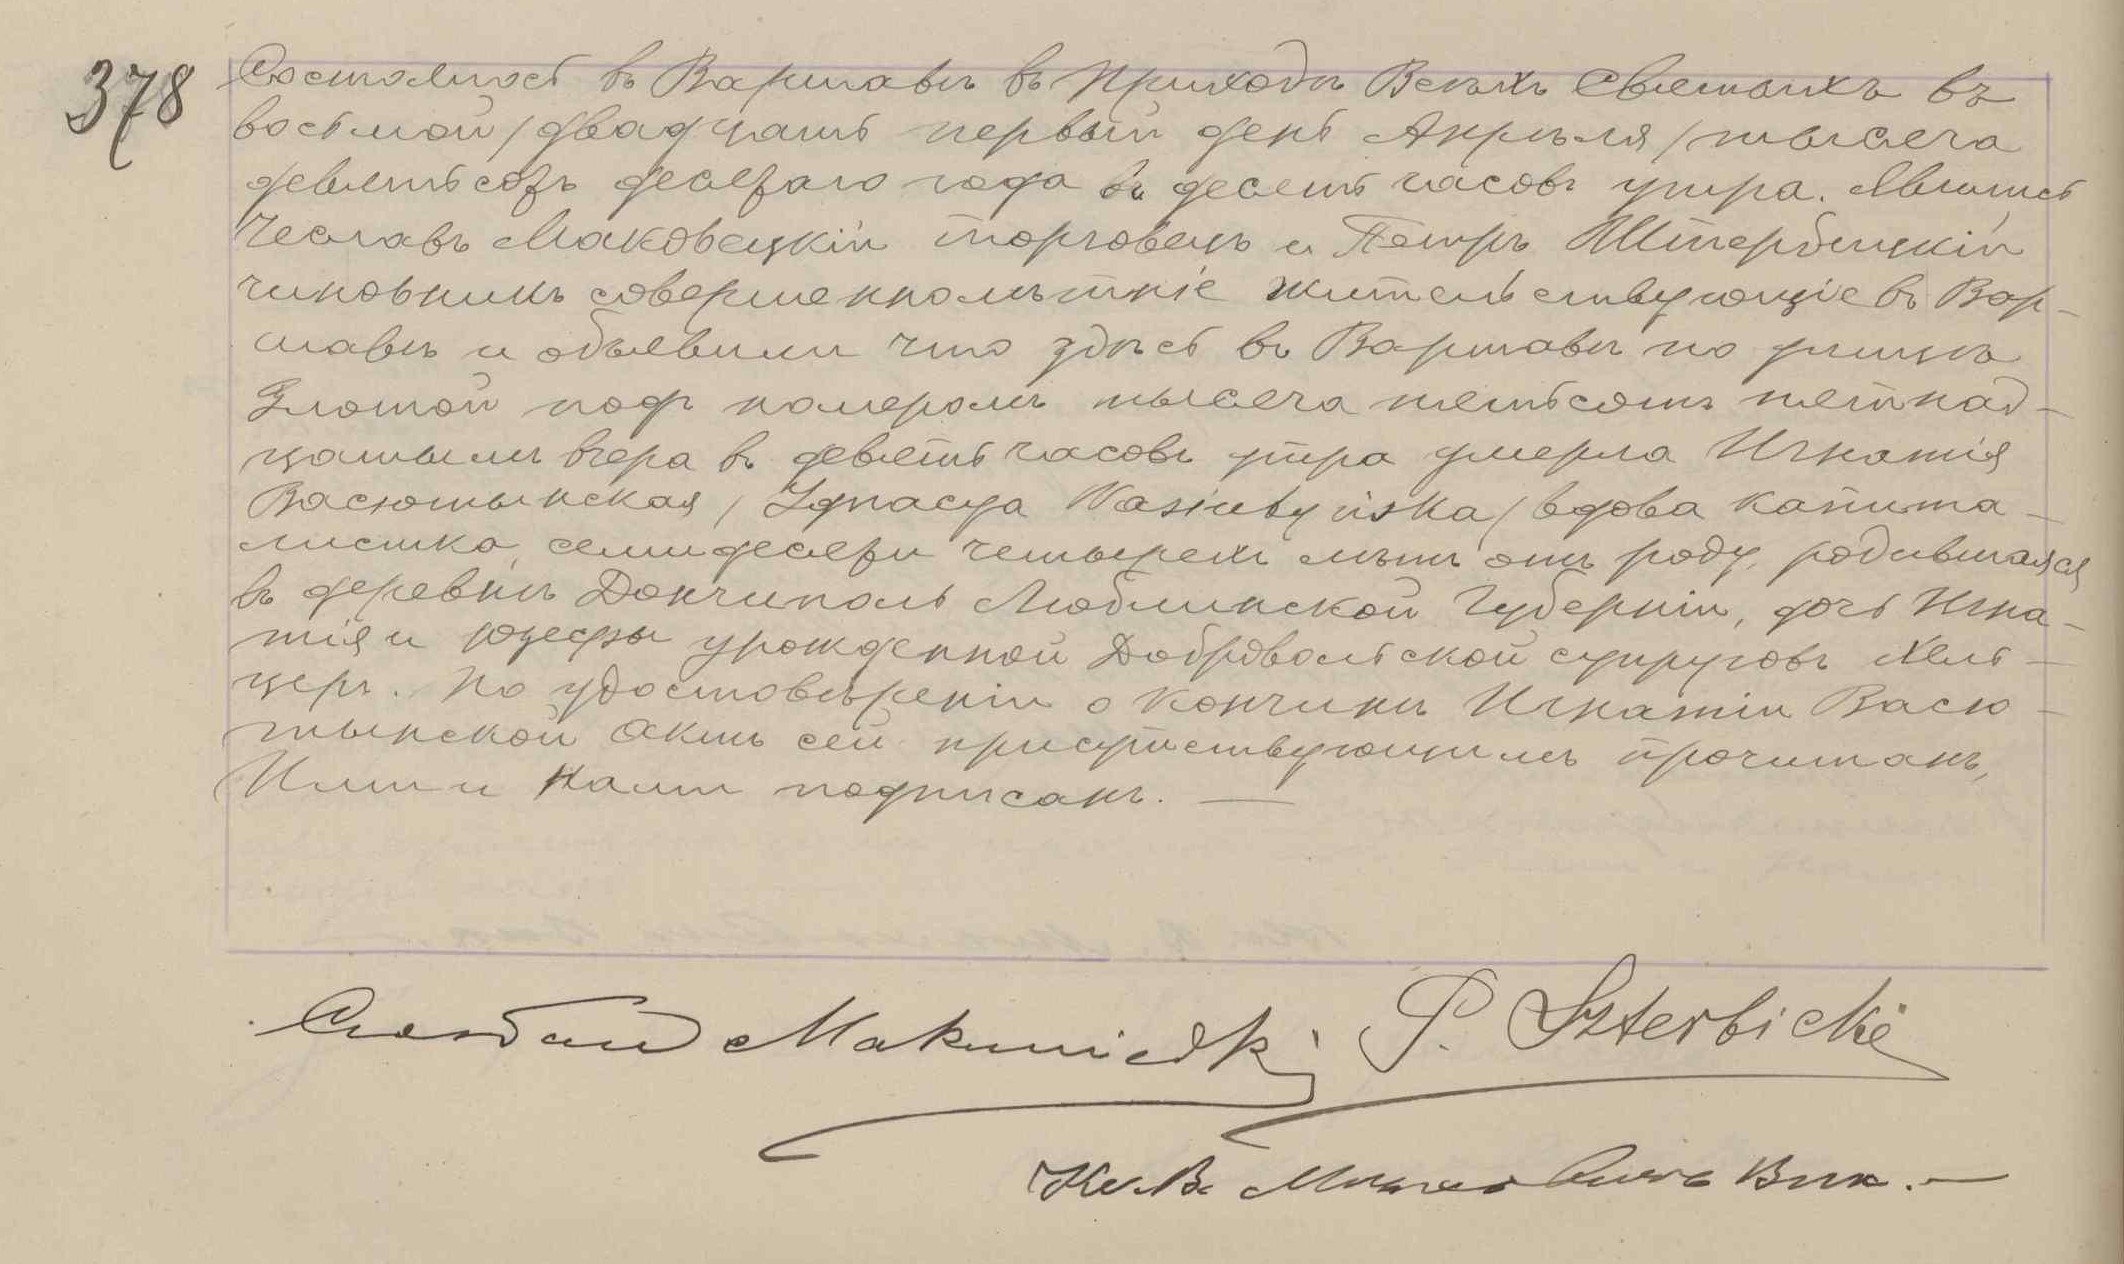 378
Состоялось въ Варшавѣ въ приходѣ Всѣхъ Святыхъ въ
восьмой /двадцать первый день Апрѣля/ тысяча
девятьсотъ десятаго года въ десять часовъ утра. Явились
Чеславъ Маковецкій торговецъ и Петръ Штербицкій
чиновникъ совершеннолѣтніе жительствующіе въ Вар-
шавѣ и объявили что здѣсь въ Варшавѣ по улицѣ
Злотой подъ номеромъ тысяча пятьсотъ пятнад-
цатымъ вчера въ девять часовъ утра умерла Игнатія
Васютынская /Ignacya Wasiutyńska/ вдова капита-
листка, семидесяти четырехъ лѣтъ отъ роду, родившаяся
въ деревнѣ Дончиполь Люблинской Губерніи, дочь Игна-
тія и Юзефы урожденной Добровольской супруговъ Мель-
церъ. По удостовѣреніи о кончинѣ Игнатіи Васю-
тынской Актъ сей присутствующимъ прочитанъ,
Ими и Нами подписанъ. —
Czesław Makowiecki P. Szterbicki
Кс. В. Вик. —